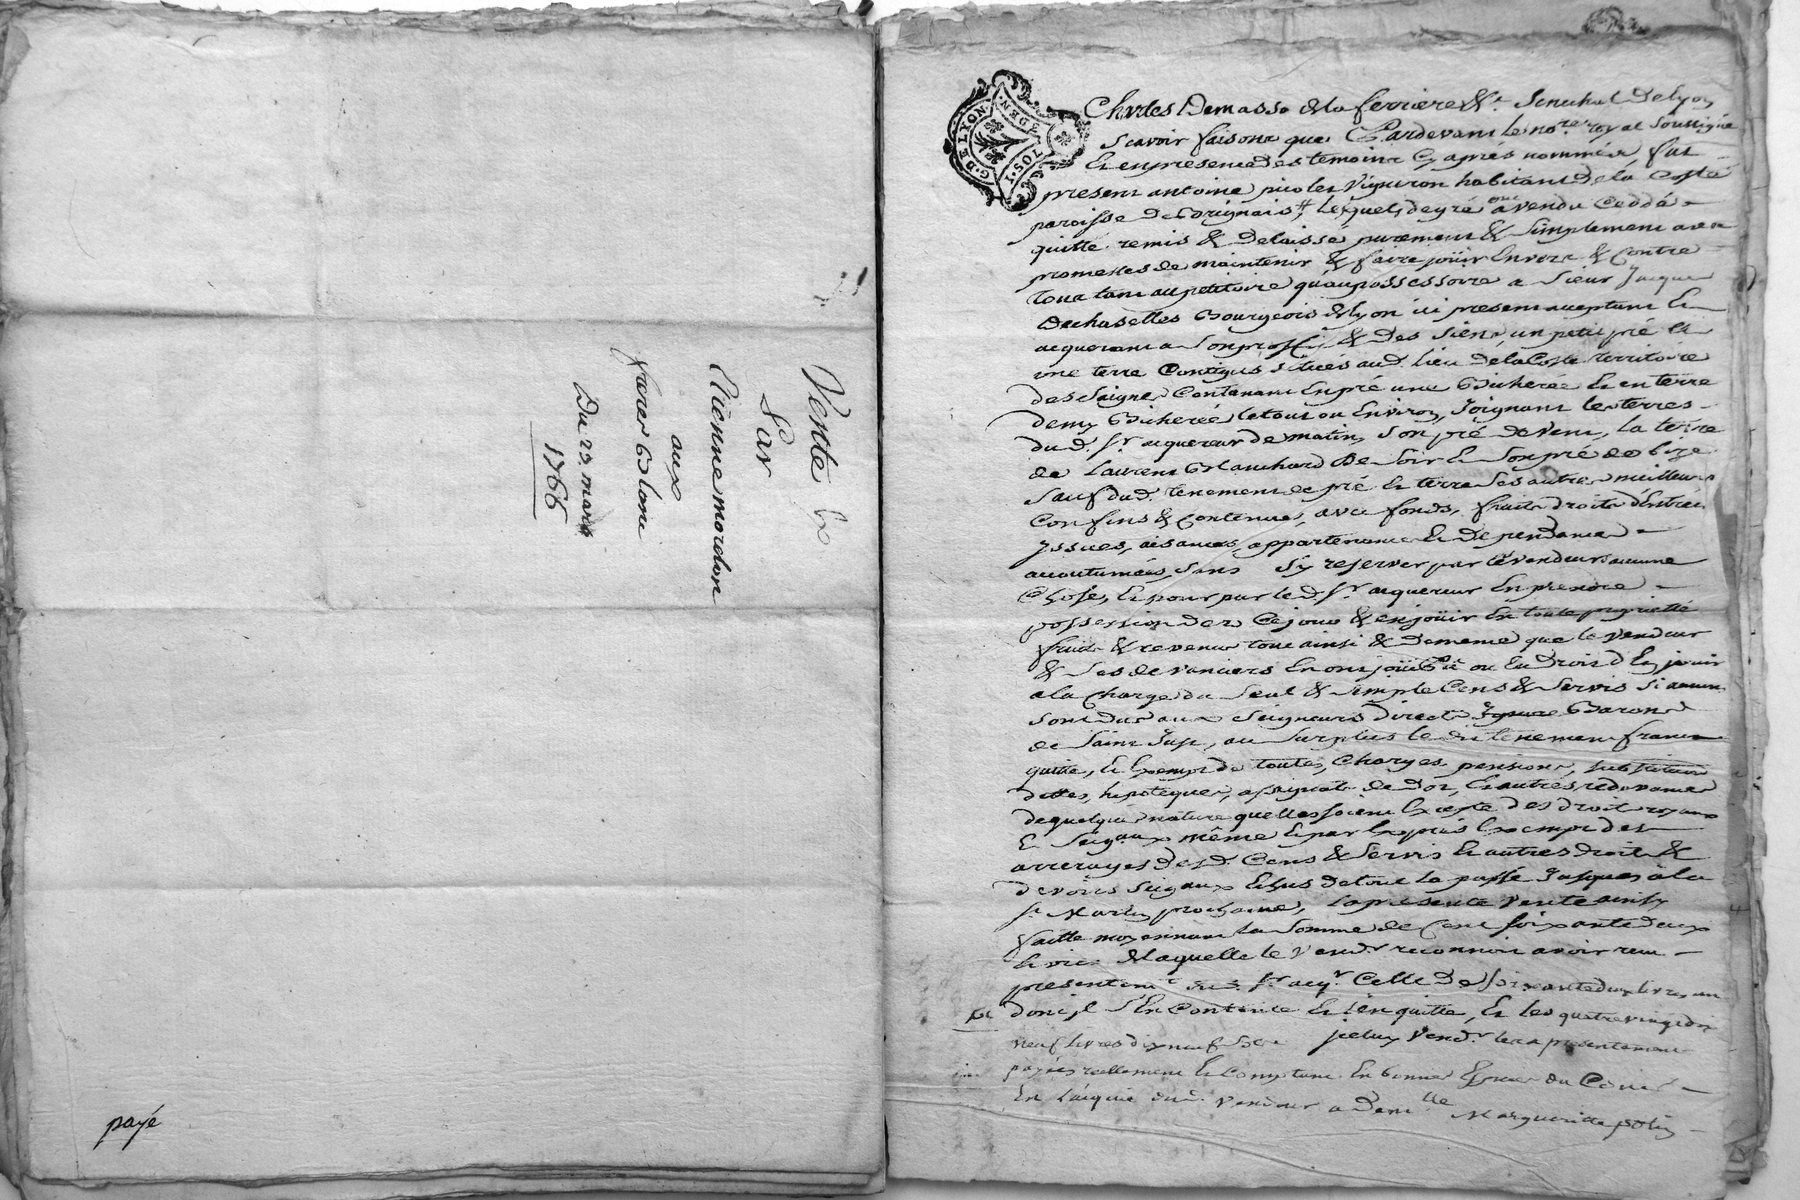 Vente
Par
Etienne mordon
aux
faver Belone
Du 23. mars
1766
payé
G. DE LYON
GEN.
1. SOL
Charles Demasso de la ferriere &c. Senechal De Lyon
Scavoir faisons que Pardevant le nore royal soussigné
Et en presence des temoins Cy aprés nommés fut
present antoine picolet Vigneron habitant De la Coste
paroisse De lequel de gré a vendu Ceddé
quitté remis & Delaissé purement & Simplement avec
promesses de maintenir & faire joüir Envers & Contre
Tous tant au petitoire qu'au possessoire a Sieur Jacque
Dechaselles Bourgeois de Lyon ici present acceptant Et
acquerant a Son proffit & Des Siens, un petit pré Et
une terre Contigus Situés aud. lieu De la Coste territoire
des Saignes Contenant En pré une Bicherée Et en terre
demy Bicherée le tout ou Environ, Joignant les terres
du d. Sr. acquereur de matin, Son pré De Vent, la terre
de Laurent Blanchard De Soir Et Son pré de bize
Sauf du d. tenement de pré Et terre Ses autres meilleurs
Confins & Contenues, avec fonds, fruits droits d'Entrées
yssues, aisances, appartenances Et Dependances
accoutumées, Sans S'y reserver par le vendeur aucune
Chose, Et pour par le d. Sr. acquereur En prendre
possession dez Ce jour & en joüir En toute proprieté
fruits & revenus tout ainsi & De meme que le vendeur
& Ses devanciers En ont joüi ou Eu Droit d'En jouir
a la Charge du Seul & Simple Cens & Servis Si aucun
Sont dus aux Seigneurs Directs Barons
de Saint Just, au Surplus le dit tenement franc
quitte, Et Exempt de toutes Charges pensions, substitution
dettes, hipoteques, assignats de Dot, Et autres redevances
de quelque nature quelles soient Excepté des droit royaux
Et Seigaux même Et par Exprés Exempt des
arrerages desd. Cens & Servis Et autres droits &
devoirs Seigaux Echus de tout le passé Jusques à la
St. Martin prochaine, la presente Vente ainsy
faitte moyennant la Somme de Cent soixante deux
Livres de laquelle le Vendr. reconnoit avoir recu
presentemt. dud. Sr. acqr. Celle De soixante deux livres
dont il S'En Contente Et l'En quitte, Et les quatre vingt dix
neuf Livres dix neuf Sols jceluy Vendr. les a presentement
payées reellement Et Comptant En bonnes Especes du Cours
En l'acquit dud. Vendeur a Demlle Margueritte